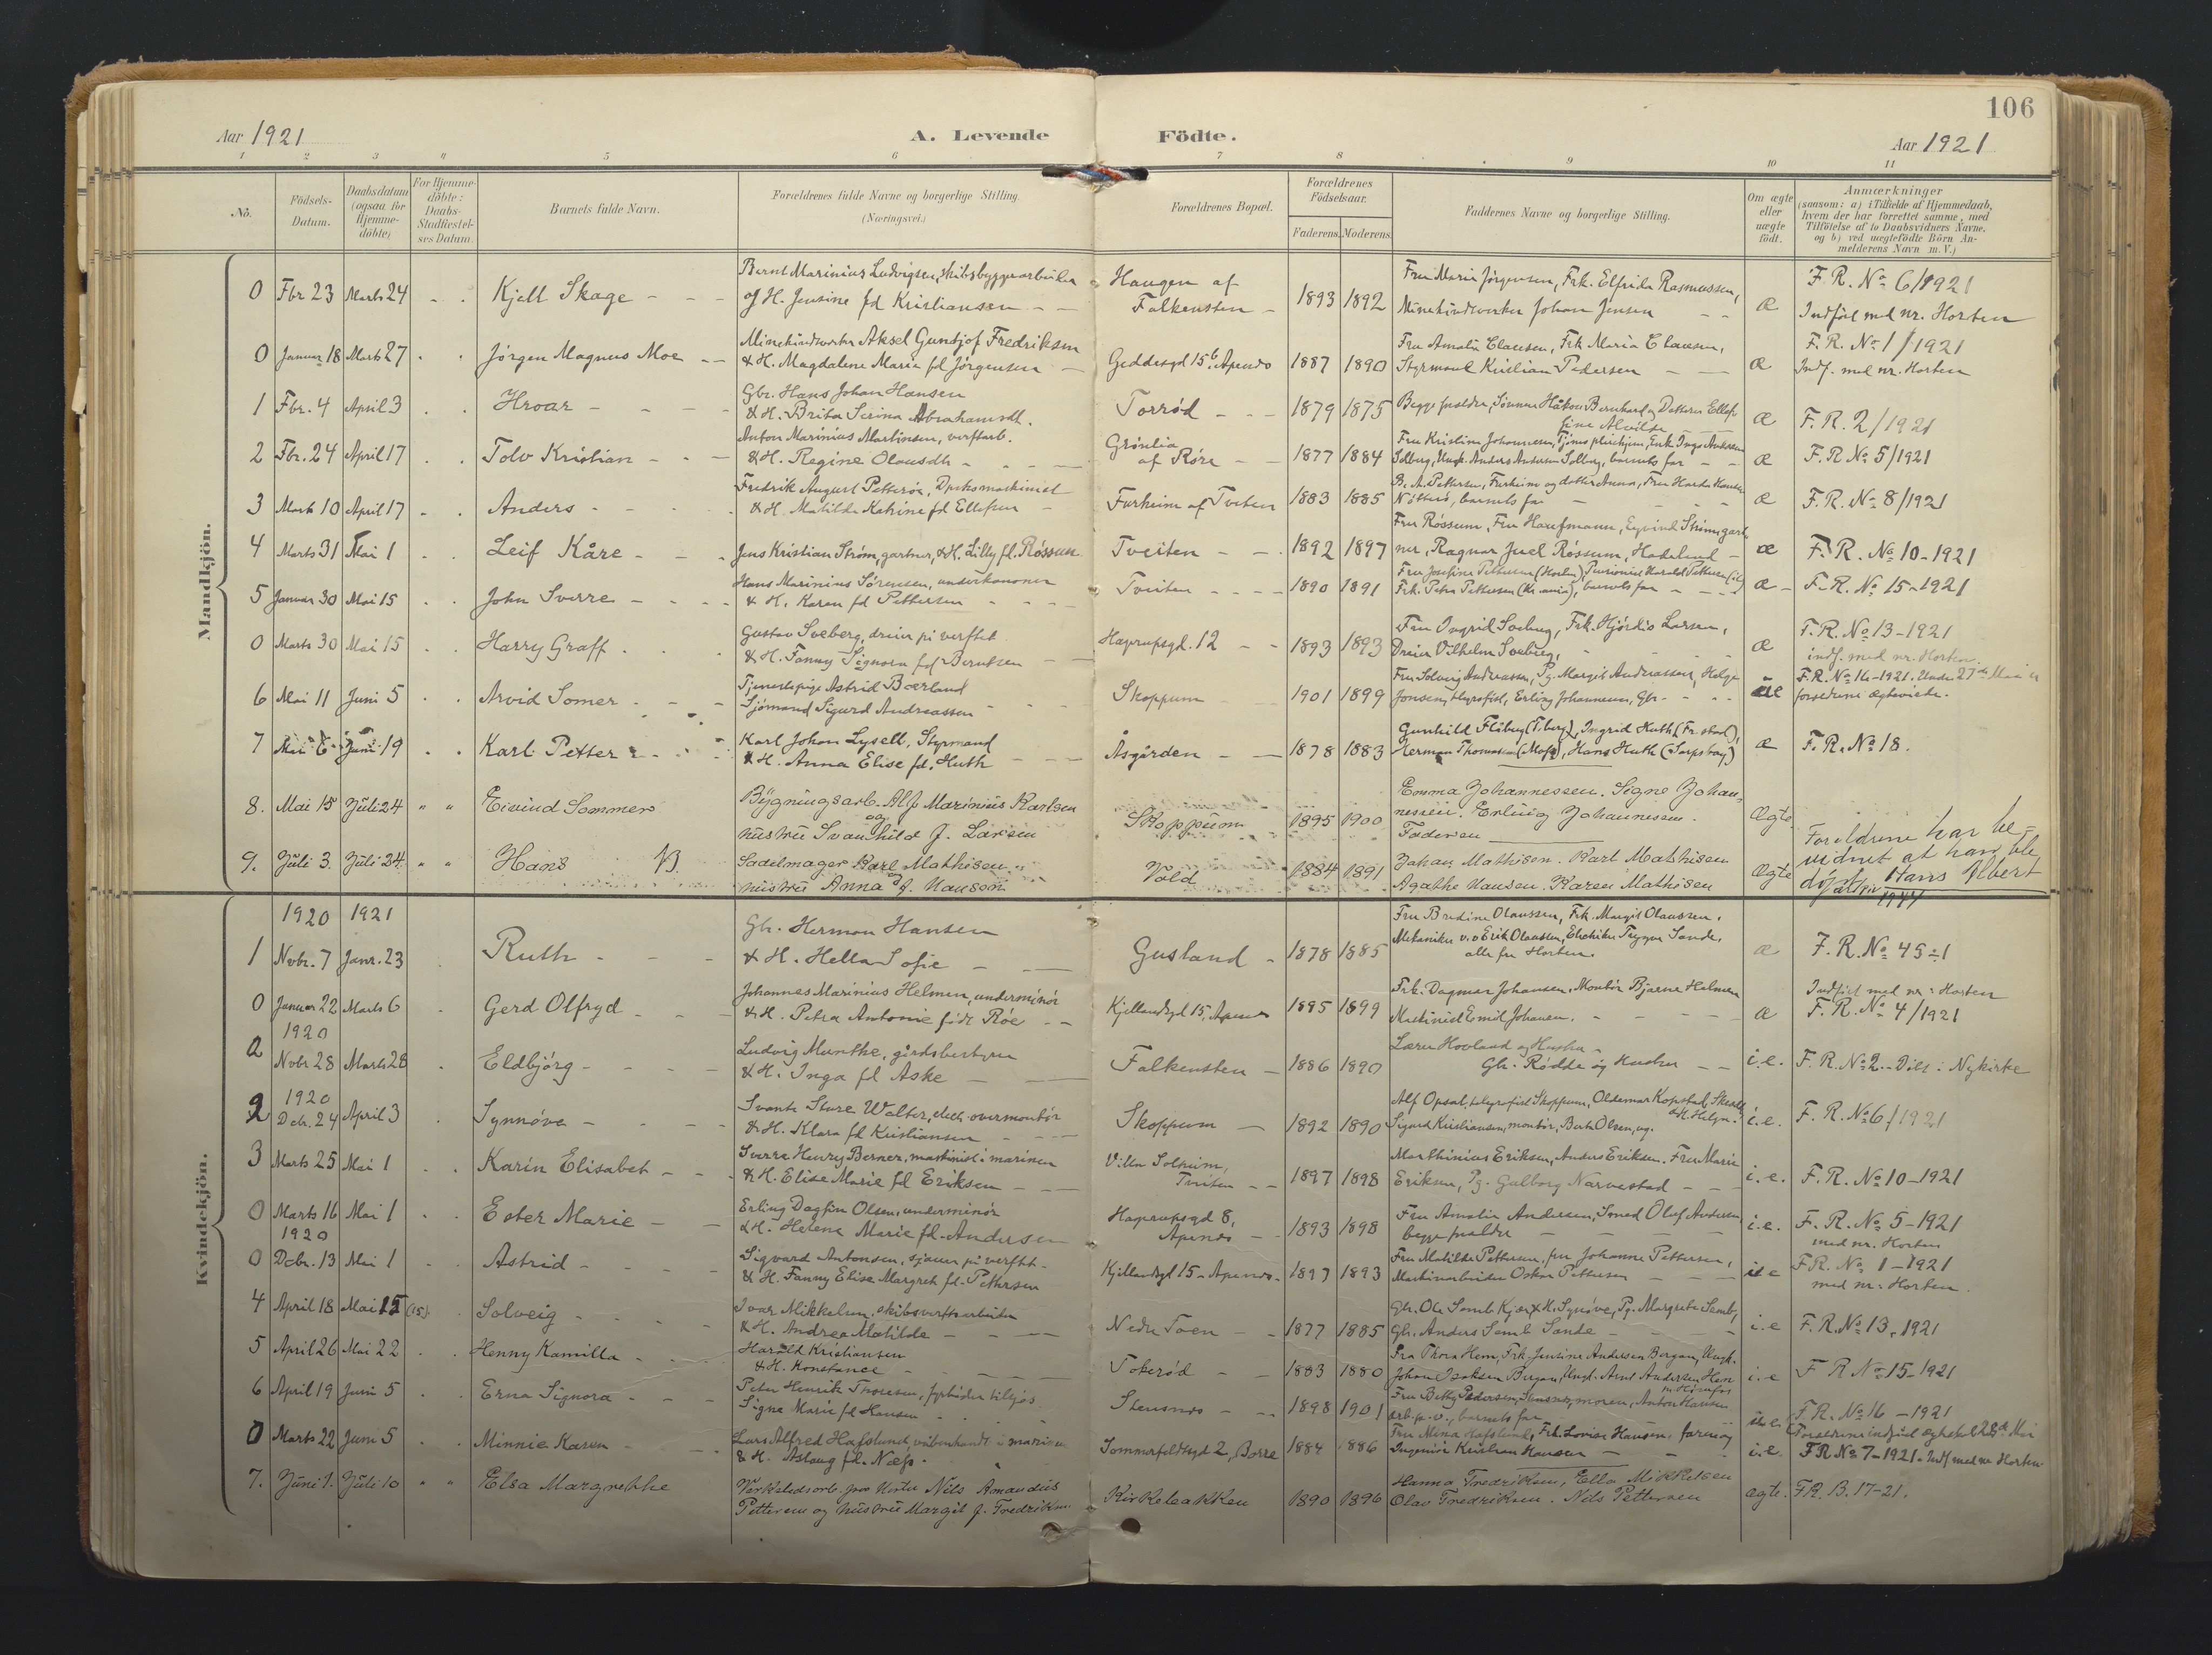 106
Aar 1921
A. Levende Födte.
Aar 1921
1 2 3 4 5 6 7 8 9 10 11
No.
Födsels-
Datum.
Daabsdatum
(ogsaa for
Hjemme-
döbte)
For Hjemme-
döbte:
Daabs-
Stadfæstel-
ses Datum.
Barnets fulde Navn.
Forældrenes fulde Navne og borgerlige Stilling.
(Næringsvei.)
Forældrenes Bopæl.
Forældrenes
Födselsaar.
Faderens. Moderens.
Faddernes Navne og borgerlige Stilling.
Om ægte
eller
uægte
födt.
Anmærkninger
(saasom: a) i Tilfælde af Hjemmedaab,
hvem der har forrettet samme, med
Tilföielse af to Daabsvidners Navne.
og b) ved uægtefödte Börn An-
melderens Navn m. V.)
Mandkjön.
0 Fbr 23 Marts 24 Kjell Skage
Bernt Marinius Ludvigsen, skibsbyggerarbeider
og H. Jensine fd Kristiansen
Haugen af
Falkensten
1893 1892
Fru Marie Jörgensen, Frk. Elfrida Rasmussen,
Minekindtverker Johan Jensen
æ
F. R. No 6/1921
Indfört med nr. Horten
0 Januar 18 Marts 27 Jörgen Magnus Moe
Aksel Gundjof Fredriksen
& H. Magdalene Marie fd Jörgensen
Geddesgd 15 b. Apenes
1887 1890
Fru Amalie Clausen, Frk Maria Clausen,
Styrmand Kristian Pedersen
æ
F. R. No 1/1921
Indf. med nr. Horten
1 Fbr. 4 April 3 Hroar
Gbr. Hans Johan Hansen
& H. Brita Serina Abrahamsdt.
Torröd
1879 1875
Begge foreldre, Sönnen Håkon Bernhard og Datteren Ellef
fine Alvilde
æ
F. R. 2/1921
2 Fbr. 24 April 17 Tolv Kristian
Anton Marinius Martinsen, verftarb.
& H. Regine Olausdt
Grönlia
af Röre
1877 1884
Fru Kristine Johannesen, Tjömö pleiehjem, Enk. Inga Andersen
Solberg, Ungk. Anders Andersen Solberg, barnets far
æ
F. R. No 5/1921
3 Marts 10 April 17 Anders
Fredrik August Petteröe, Dæksmaskinist
& H. Matilde Katrine fd Ellefsen
Furheim af Tveiten
1883 1885
Nötterö, barnets far
æ
F. R. No 8/1921
4 Marts 31 Mai 1 Leif Kåre
Jens Kristian Ström, gartner, & H. Lilly fd. Rössum
Tveiten
1892 1897
Fru Rossum, Fru Haufmann, Eyvind Strim gart-
ner, Ragnar Juel Rössum, Hadeland
æ
F. R. No 10-1921
5 Januar 30 Mai 15 John Sverre
Hans Marinius Sörensen, underkanoner
& H. Karen fd Pettersen
Tveiten
1890 1891
Fru Josefine Pettersen (Horten), Pensionist Harald Pettersen
Frk. Petra Pettersen (Kr.ania), barnets far
æ
F. R. No 15-1921
0 Marts 30 Mai 15 Harry Graff
Gustav Soeberg, dreier på verftet
& H. Fanny Signora fd Berntsen
Haprupsgd. 12
1893 1893
Fru Ingrid Soeberg, Frk. Hjördis Larsen,
Dreier Vilhelm Soeberg,
æ
F. R. No 13-1921
indf. med nr. Horten
6 Mai 11 Juni 5 Arvid Somer
Tjenestepige Astrid Bærland
Sjömand Sigurd Andreassen
Skoppum
1901 1899
Fru Solveig Andreassen, Pg. Margit Andreassen, Helge
Jonsen, telegrafist, Erling Johannesen, Gbr.
ue
F. R. No 16-1921. Under 27de Mai er
foreldrene ægteviede.
7 Mai 6 Juni 19 Karl Petter
Karl Johan Lysell, Styrmand
& H. Anna Elise fd. Huth
Åsgården
1878 1883
Gunhild Flåbug (T.berg), Ingrid Huth (Fr.stad),
Herman Thomassen (Moss), Hans Huth (Sarpsborg)
æ
F. R. No 18.
8. Mai 15 Juli 24 " " Eivind Sommer
Bygningsarb. Alf Marinius Karlsen
og
hustru Svanhild f. Larsen
Skoppum
1895 1900
Emma Johannessen. Signe Johan-
nessen. Erling Johannesen.
Faderen
Ægte
9. Juli 3. Juli 24. " " Hans
Sadelmager Karl Mathisen
hustru Anna f. Hansen
Vold
1884 1891
Johan Mathisen. Karl Mathisen
Agathe Hansen. Karen Mathisen
Ægte
Foreldrene har be-
vidnet at han ble
döpt Hans Albert
1944
Kvindekjön.
1920 1921
1 Nvbr. 7 Janr. 23 Ruth
Gbr. Herman Hansen
& H. Hella Sofie
Gusland
1878 1885
Fru Bredine Olaussen, Frk. Margit Olaussen,
Mekaniker v.v Erik Olaussen, Elektriker Trygve Sande,
alle fra Horten.
æ
F. R. No 45-1
0 Januar 22 Marts 6 Gerd Olfryd
Johannes Marinius Helmen, underminör
& H. Petra Antonie födt Röe
Kjellandsgd 15, Apenes
1895 1899
Frk. Dagmar Johansen, Montör Bjarne Helmen
Maskinist Emil Johansen.
æ
Indfört med nr. i Horten
F. R. No 4/1921
1920
Nvbr 28 Marts 28 Eldbjörg
Ludvig Munthe, gårdsbestyrer
& H. Inga fd Aske
Falkensten
1886 1890
Lærer Hovland og Hustru
Gbr. Rödde og Hustru
i.e.
F. R. No 2. Döbt i Nykirke
1920
2 Dcbr. 24 April 3 Synnöve
Svante Sture Walter, elect. overmontör
& H. Klara fd Kristiansen
Skoppum
1892 1890
Alf Opsal, telegrafist Skoppum, Oldemar Kopstad, Skoppum
Sigurd Kristiansen, montör, Berte Olsen, ug. & H. Helga.
i.e.
F. R. No 6/1921
3 Marts 25 Mai 1 Karin Elisabet
Sverre Henry Berner, maskinist i marinen
& H. Elise Marie fd Eriksen
Villa Solheim,
Tveiten
1897 1898
Marthinius Eriksen, Anders Eriksen. Fru Marie
Eriksen, Pg. Gulborg Narvestad
i.e.
F. R. No 10-1921
0 Marts 16 Mai 1 Ester Marie
Erling Dagfin Olsen, underminör
& H. Helene Marie fd. Andersen
Haprupsgd 8,
Apenes
1893 1898
Fru Amalie Andersen, Smed Olaf Andersen,
begge foreldre
i.e.
F. R. No 5-1921
med nr. Horten
1920
0 Dcbr. 13 Mai 1 Astrid
Sigvard Antonsen, sjauer på verftet
& H. Fanny Elise Margret fd. Pettersen
Kjellandsgd 15 - Apenes
1897 1893
Fru Matilde Pettersen, fru Johanne Pettersen,
Maskinarbeider Oskar Pettersen
ie
F. R. No 1-1921
med nr. Horten.
4 April 18 Mai 15 (15) Solveig
Ivar Mikkelsen, skibsverftsarbeider
& H. Andrea Matilde
Nedre Toen
1877 1885
Gbr. Ole Semb Kjær & H. Synöve, Pg. Margrete Semb,
Gbr. Anders Semb Sande
i.e
F. R. No 13, 1921
5 April 26 Mai 22 Henny Kamilla
Harald Kristiansen
& H. Konstance
Tokeröd
1883 1880
Fra Thora Hem, Frk. Jensine Andersen Borgan, Ungk.
Johan Isaksen Borgan, Ungk. Arnt Andersen Hem
i.e
F R No 15-1921
6 April 19 Juni 5 Erna Signora
Peter Henrik Thoresen, fyrböder tilsjös
Signe Marie fd Hansen
Stensnes
1898 1901
Fru Betty Pedersen, Stensnes, moren, Anton Hansen
arb. p. v., barnets far
ue
F. R. No 16-1921
Foreldrene indgik ægteskab 28de Mai
0 Marts 22 Juni 5 Minnie Karen
Lars Alfred Hafslund, våbenhandt. i marinen
& H. Aslaug fd. Næss.
Sommerfeldtsgd 2, Borre
1884 1886
Fru Mina Hafslund, Frk Lovise Hansen, faren og
Ingeniör Kristian Hansen
i.e.
F R No 7-1921. Indf med nr Horten
7. Juni 1. Juli 10 " " Elsa Margrethe
Verkstedsarb. paa Horten Nils Amandus
Pettersen og hustru Margit f. Fredriksen
Kirkebakken
1890 1896
Hanna Fredriksen, Ella Mikkelsen
Olav Fredriksen. Nils Pettersen
ægte.
F. R. B. 17-21.